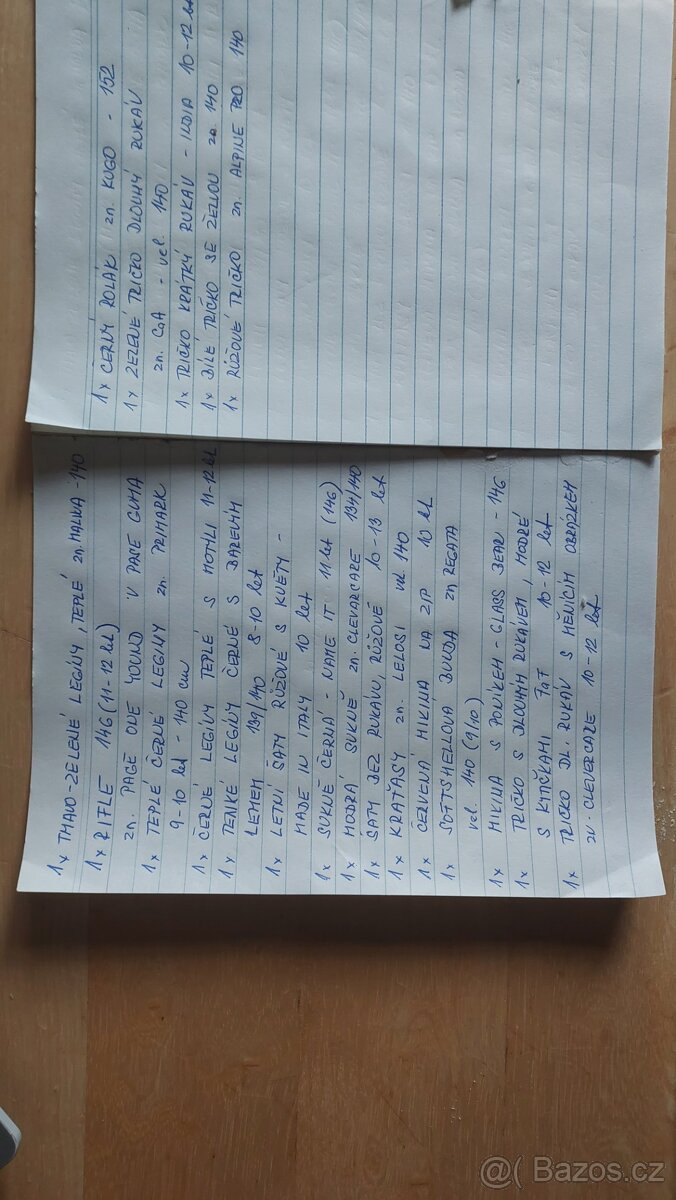 1x TMAVO-ZELENÉ LEGÍNY, TEPLÉ zn. MALIKA - 140
1x RIFLE 146 (11-12 let)
zn. PAGE ONE YOUND V PASE GUMA
1x TEPLÉ ČERNÉ LEGÍNY zn. PRIMARK
9-10 let - 140 cm
1x ČERNÉ LEGÍNY TEPLÉ S MOTÝLI 11-12 let
1x TENKÉ LEGÍNY ČERNÉ S BAREVNÝM
LEMEM 139/140 8-10 let
1x LETNÍ ŠATY RŮŽOVÉ S KVĚTY -
MADE IN ITALY 10 let
1x SUKNĚ ČERNÁ - NAME IT 11 let (146)
1x MODRÁ SUKNĚ zn. CLEVARCARE 134/140
1x ŠATY BEZ RUKÁVU, RŮŽOVÉ 10-13 let
1x KRAŤASY zn. LELOSI vel 140
1x ČERVENÁ MIKINA NA ZIP 10 let
1x SOFTSHELLOVÁ BUNDA zn REGATA
vel. 140 (9/10)
1x MIKINA S PONÍKEM - GLASS BEAR - 146
1x TRIČKO S DLOUHÝM RUKÁVEM, MODRÉ
S KYTIČKAMI F&F 10-12 let
1x TRIČKO DL. RUKÁV S MĚNÍCÍM OBRÁZKEM
zn. CLEVERCARE 10-12 let
1x ČERNÝ ROLÁK zn. KUGO - 152
1x ZELENÉ TRIČKO DLOUHÝ RUKÁV
zn. C&A - vel. 140
1x TRIČKO KRÁTKÝ RUKÁV - INDIA 10-12 let
1x BÍLÉ TRIČKO SE ŽELVOU 140
1x RŮŽOVÉ TRIČKO zn. ALPINE PRO 140
@( Bazoš.cz